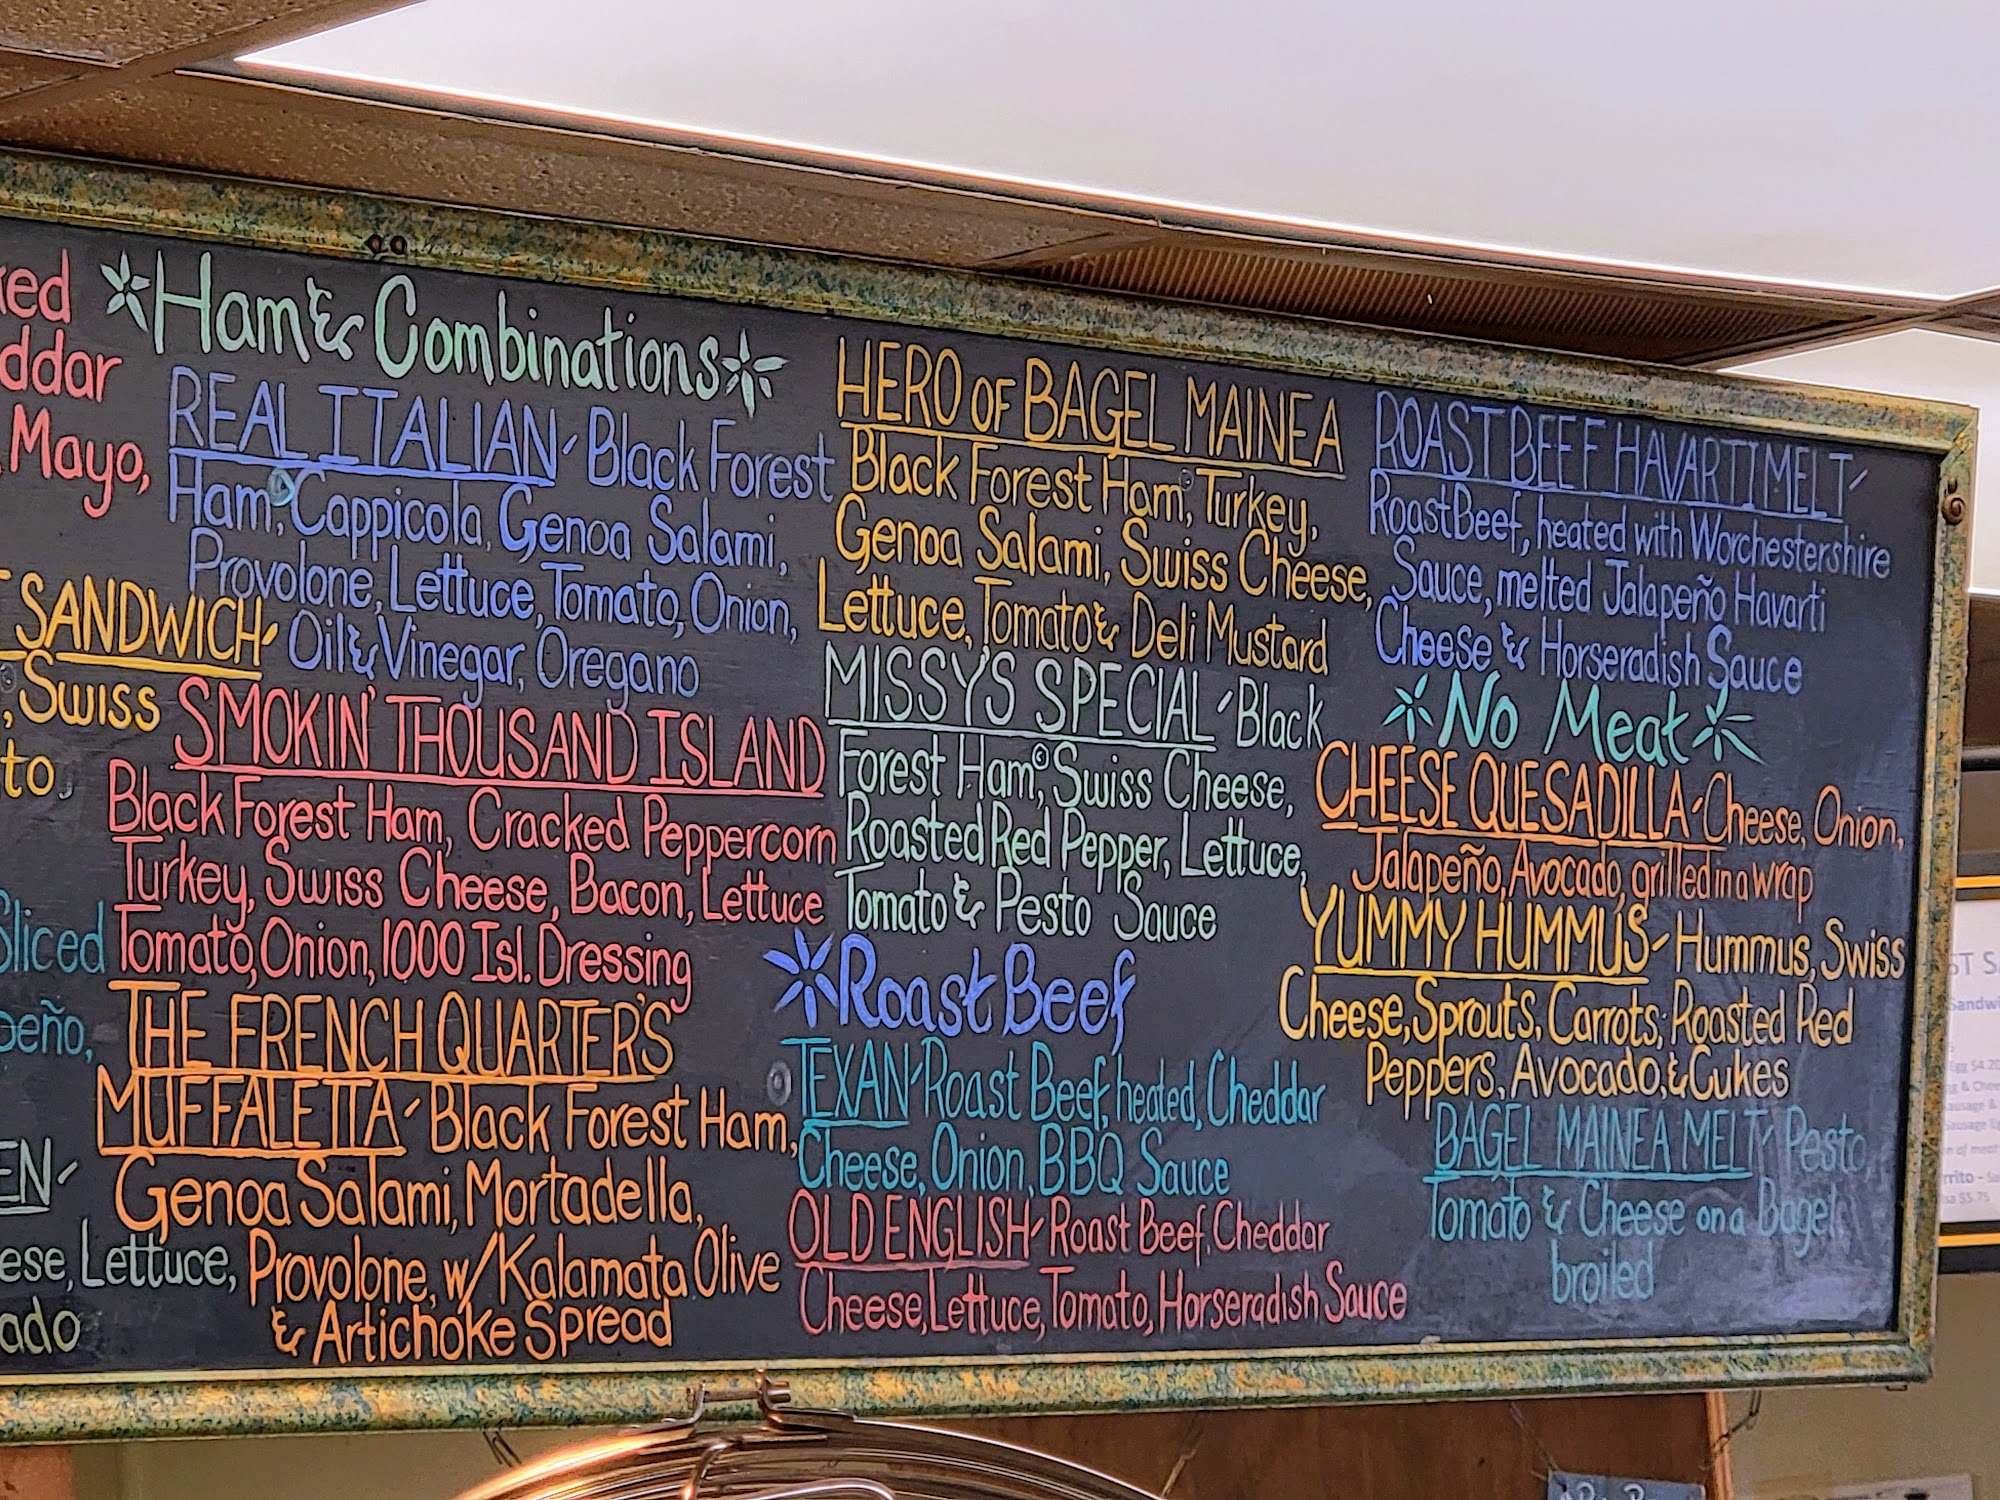 ddar
Mayo,
SANDWICH-
, Swiss
to,
Sliced
peño,
EN-
ese, Lettuce,
ado
Ham & Combinations
REAL ITALIAN - Black Forest
Ham, Cappicola, Genoa Salami,
Provolone, Lettuce, Tomato, Onion,
Oil & Vinegar, Oregano
SMOKIN' THOUSAND ISLAND
Black Forest Ham, Cracked Peppercorn
Turkey, Swiss Cheese, Bacon, Lettuce
Tomato, Onion, 1000 Isl. Dressing
THE FRENCH QUARTER'S
MUFFALETTA - Black Forest Ham,
Genoa Salami, Mortadella,
Provolone, w/Kalamata Olive
& Artichoke Spread
HERO OF BAGEL MAINEA
Black Forest Ham, Turkey,
Genoa Salami, Swiss Cheese,
Lettuce, Tomato & Deli Mustard
MISSY'S SPECIAL - Black
Forest Ham, Swiss Cheese,
Roasted Red Pepper, Lettuce,
Tomato & Pesto Sauce
Roast Beef
TEXAN - Roast Beef, heated, Cheddar
Cheese, Onion, BBQ Sauce
OLD ENGLISH - Roast Beef, Cheddar
Cheese, Lettuce, Tomato, Horseradish Sauce
ROAST BEEF HAVARTI MELT -
Roast Beef, heated with Worchestershire
Sauce, melted Jalapeño Havarti
Cheese & Horseradish Sauce
No Meat
CHEESE QUESADILLA - Cheese, Onion,
Jalapeño, Avocado, grilled in a wrap
YUMMY HUMMUS - Hummus, Swiss
Cheese, Sprouts, Carrots, Roasted Red
Peppers, Avocado, & Cukes
BAGEL MAINEA MELT - Pesto,
Tomato & Cheese on a Bagel
broiled